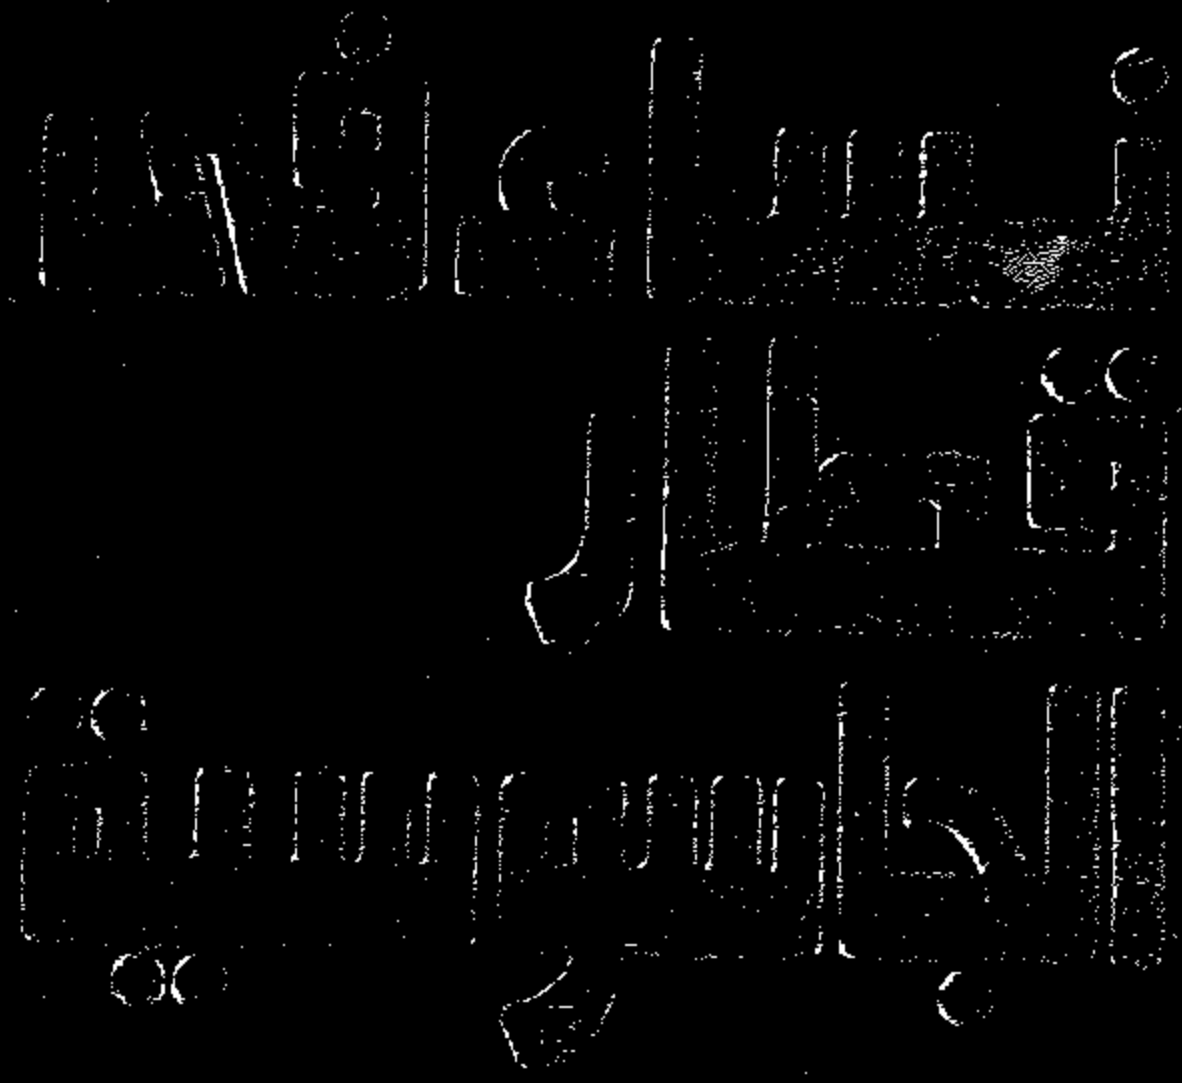 نساء في
قطار
الجاسوسية